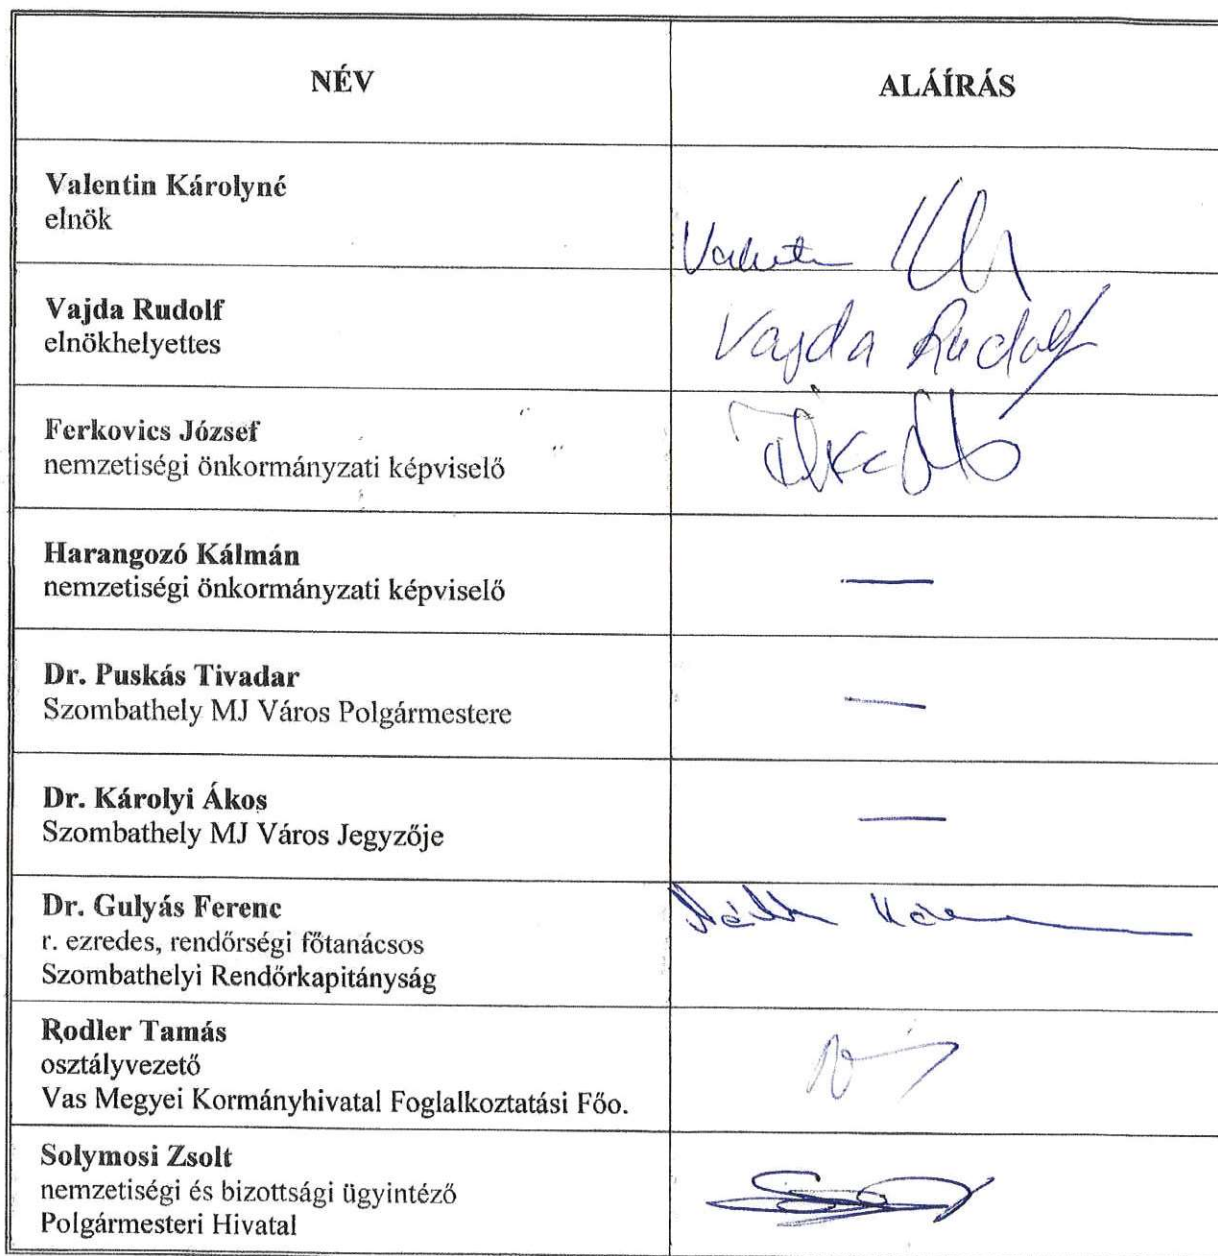 NÉV
ALÁÍRÁS
Valentin Károlyné
elnök
Vajda Rudolf
elnökhelyettes
Vajda Rudolf
Ferkovics József
nemzetiségi önkormányzati képviselő
Harangozó Kálmán
nemzetiségi önkormányzati képviselő
—
Dr. Puskás Tivadar
Szombathely MJ Város Polgármestere
—
Dr. Károlyi Ákos
Szombathely MJ Város Jegyzője
—
Dr. Gulyás Ferenc
r. ezredes, rendőrségi főtanácsos
Szombathelyi Rendőrkapitányság
Rodler Tamás
osztályvezető
Vas Megyei Kormányhivatal Foglalkoztatási Főo.
Solymosi Zsolt
nemzetiségi és bizottsági ügyintéző
Polgármesteri Hivatal